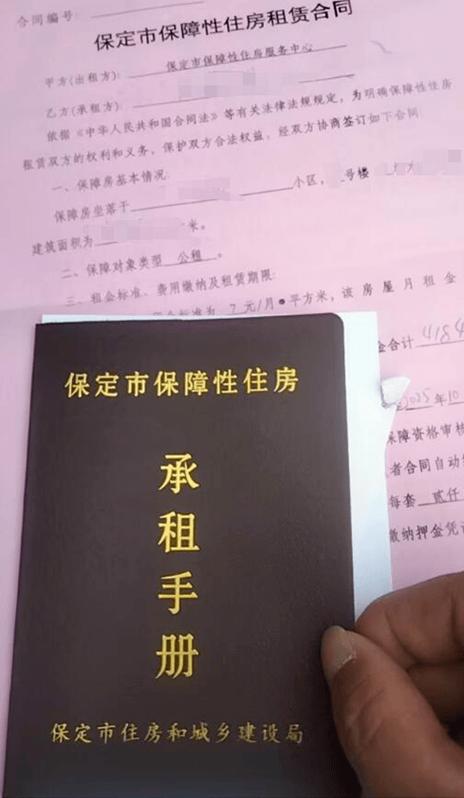 合同编号:
保定市保障性住房租赁合同
甲方(出租方): 保定市保障性住房服务中心
乙方(承租方):
依据《中华人民共和国合同法》等有关法律法规规定，为明确保障性住房
租赁双方的权利和义务，保护双方合法权益，经双方协商签订如下合同
一、保障房基本情况:
保障房坐落于 小区， 号楼
建筑面积为 米。
二、保障对象类型 公租 。
三、租金标准、费用缴纳及租赁期限:
标准为 7 元/月·平方米，该房屋月租金
金合计 4184
2025 年 10
保障资格审核
者合同自动
每套 贰仟
缴纳押金凭
保定市保障性住房
承租手册
保定市住房和城乡建设局